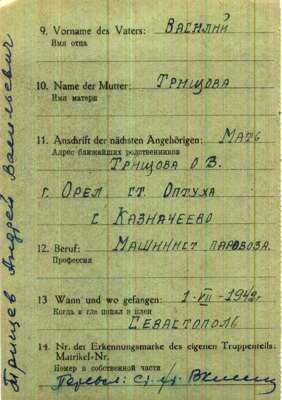 9. Vorname des Vaters: ВАСИЛИЙ
Имя отца
10. Name der Mutter: ТРИЩОВА
Имя матери
11. Anschrift der nächsten Angehörigen: МАТЬ
Адрес ближайших родственников
ТРИЩОВА О В.
г. ОРЕЛ СТ. ОПТУХА
С КАЗНАЧЕЕВО
12. Beruf: МАШИНИСТ ПАРОВОЗА.
Профессия
13 Wann und wo gefangen: 1-VII-1942г
Когда и где попал в плен
СЕВАСТОПОЛЬ
14. Nr. der Erkennungsmarke des eigenen Truppenteils:
Matrikel-Nr.
Номер в собственной части
Перевел:
Трищев Андрей Васильевич